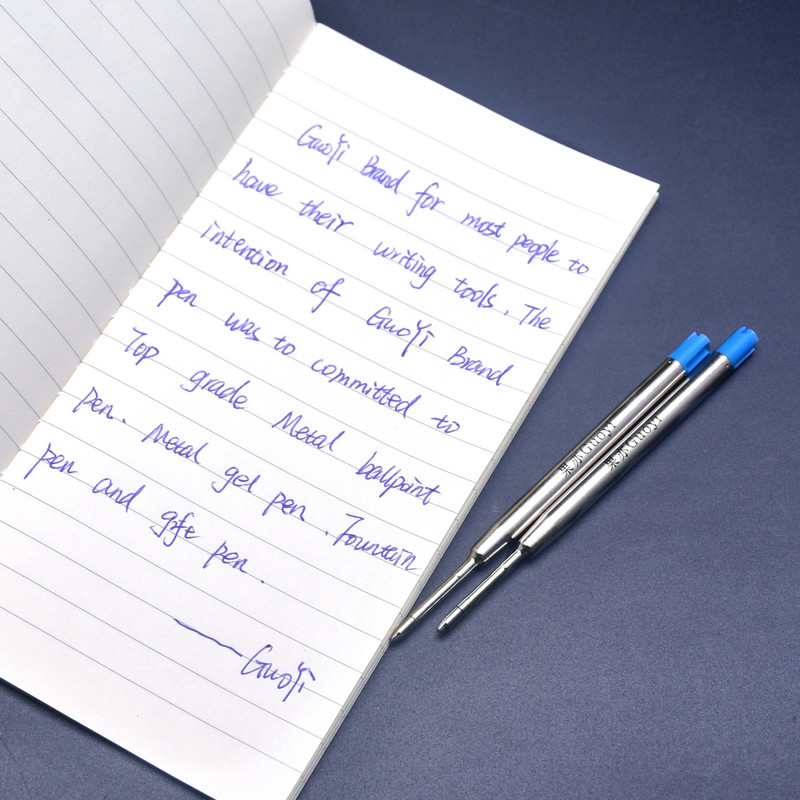 GuoYi Brand for most people to
have their writing tools. The
intention of GuoYi Brand
pen was to committed to
Top grade Metal ballpoint
pen. Metal gel pen. Fountain
pen and gife pen.
—GuoYi
果亦GuoyI
果亦GuoyI